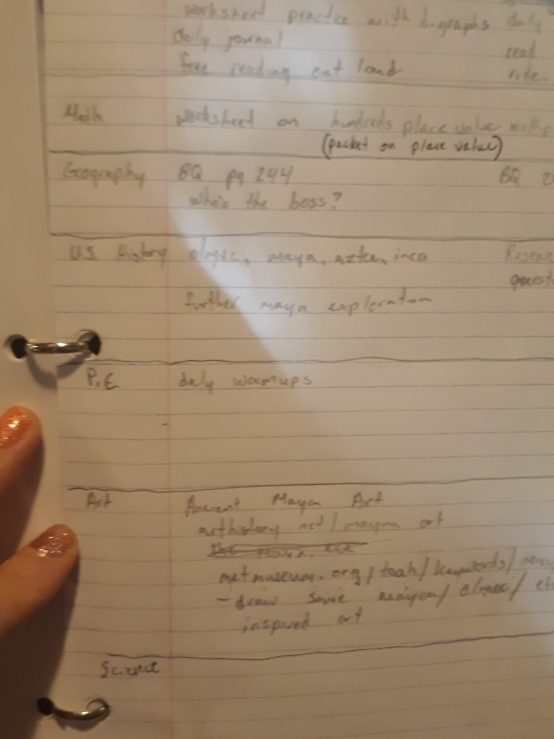 worksheet practice with digraphs daily
daily journal read
free reading out loud
Math worksheet on hundreds place value
(packet on place value)
Geography BQ pg 244 BQ
who's the boss?
U.S. History olmec, maya, aztec, inca
further maya exploration
P.E daly warmups
Art Ancient Maya Art
arthistory.net/mayan art
metmuseum.org/toah/keywords/
-draw some mayan/olmec/etc
inspired art
Science